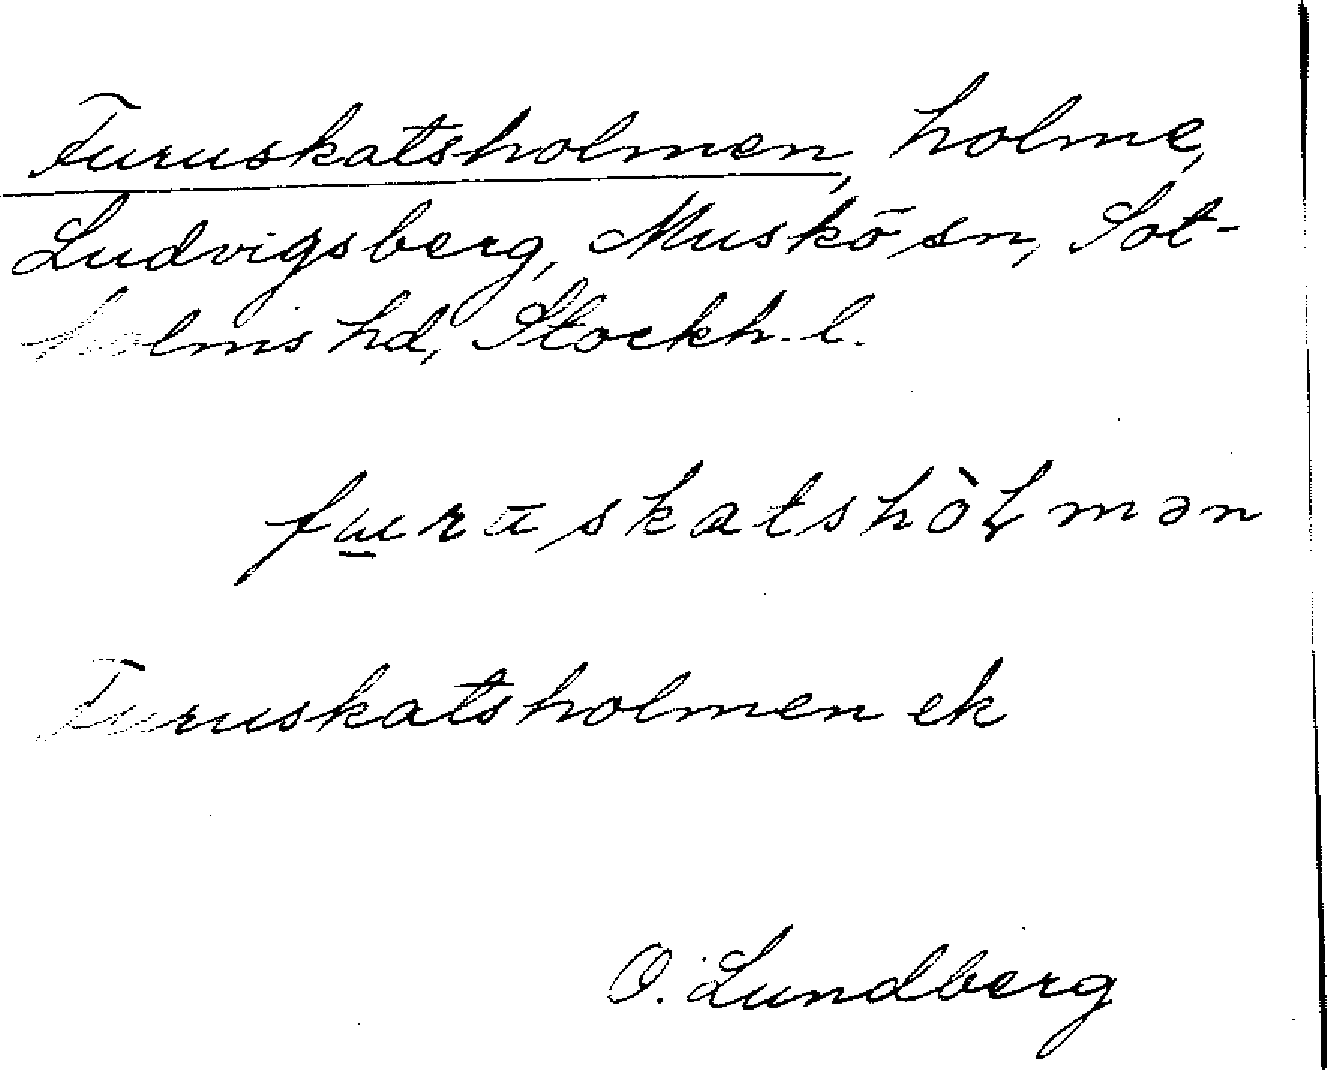 Furuskatsholmen, holme,
Ludvigsberg, Muskö sn, Sot-
holms hd, Stockh. l.
furuskatshòɫmən
Furuskatsholmen ek
O. Lundberg